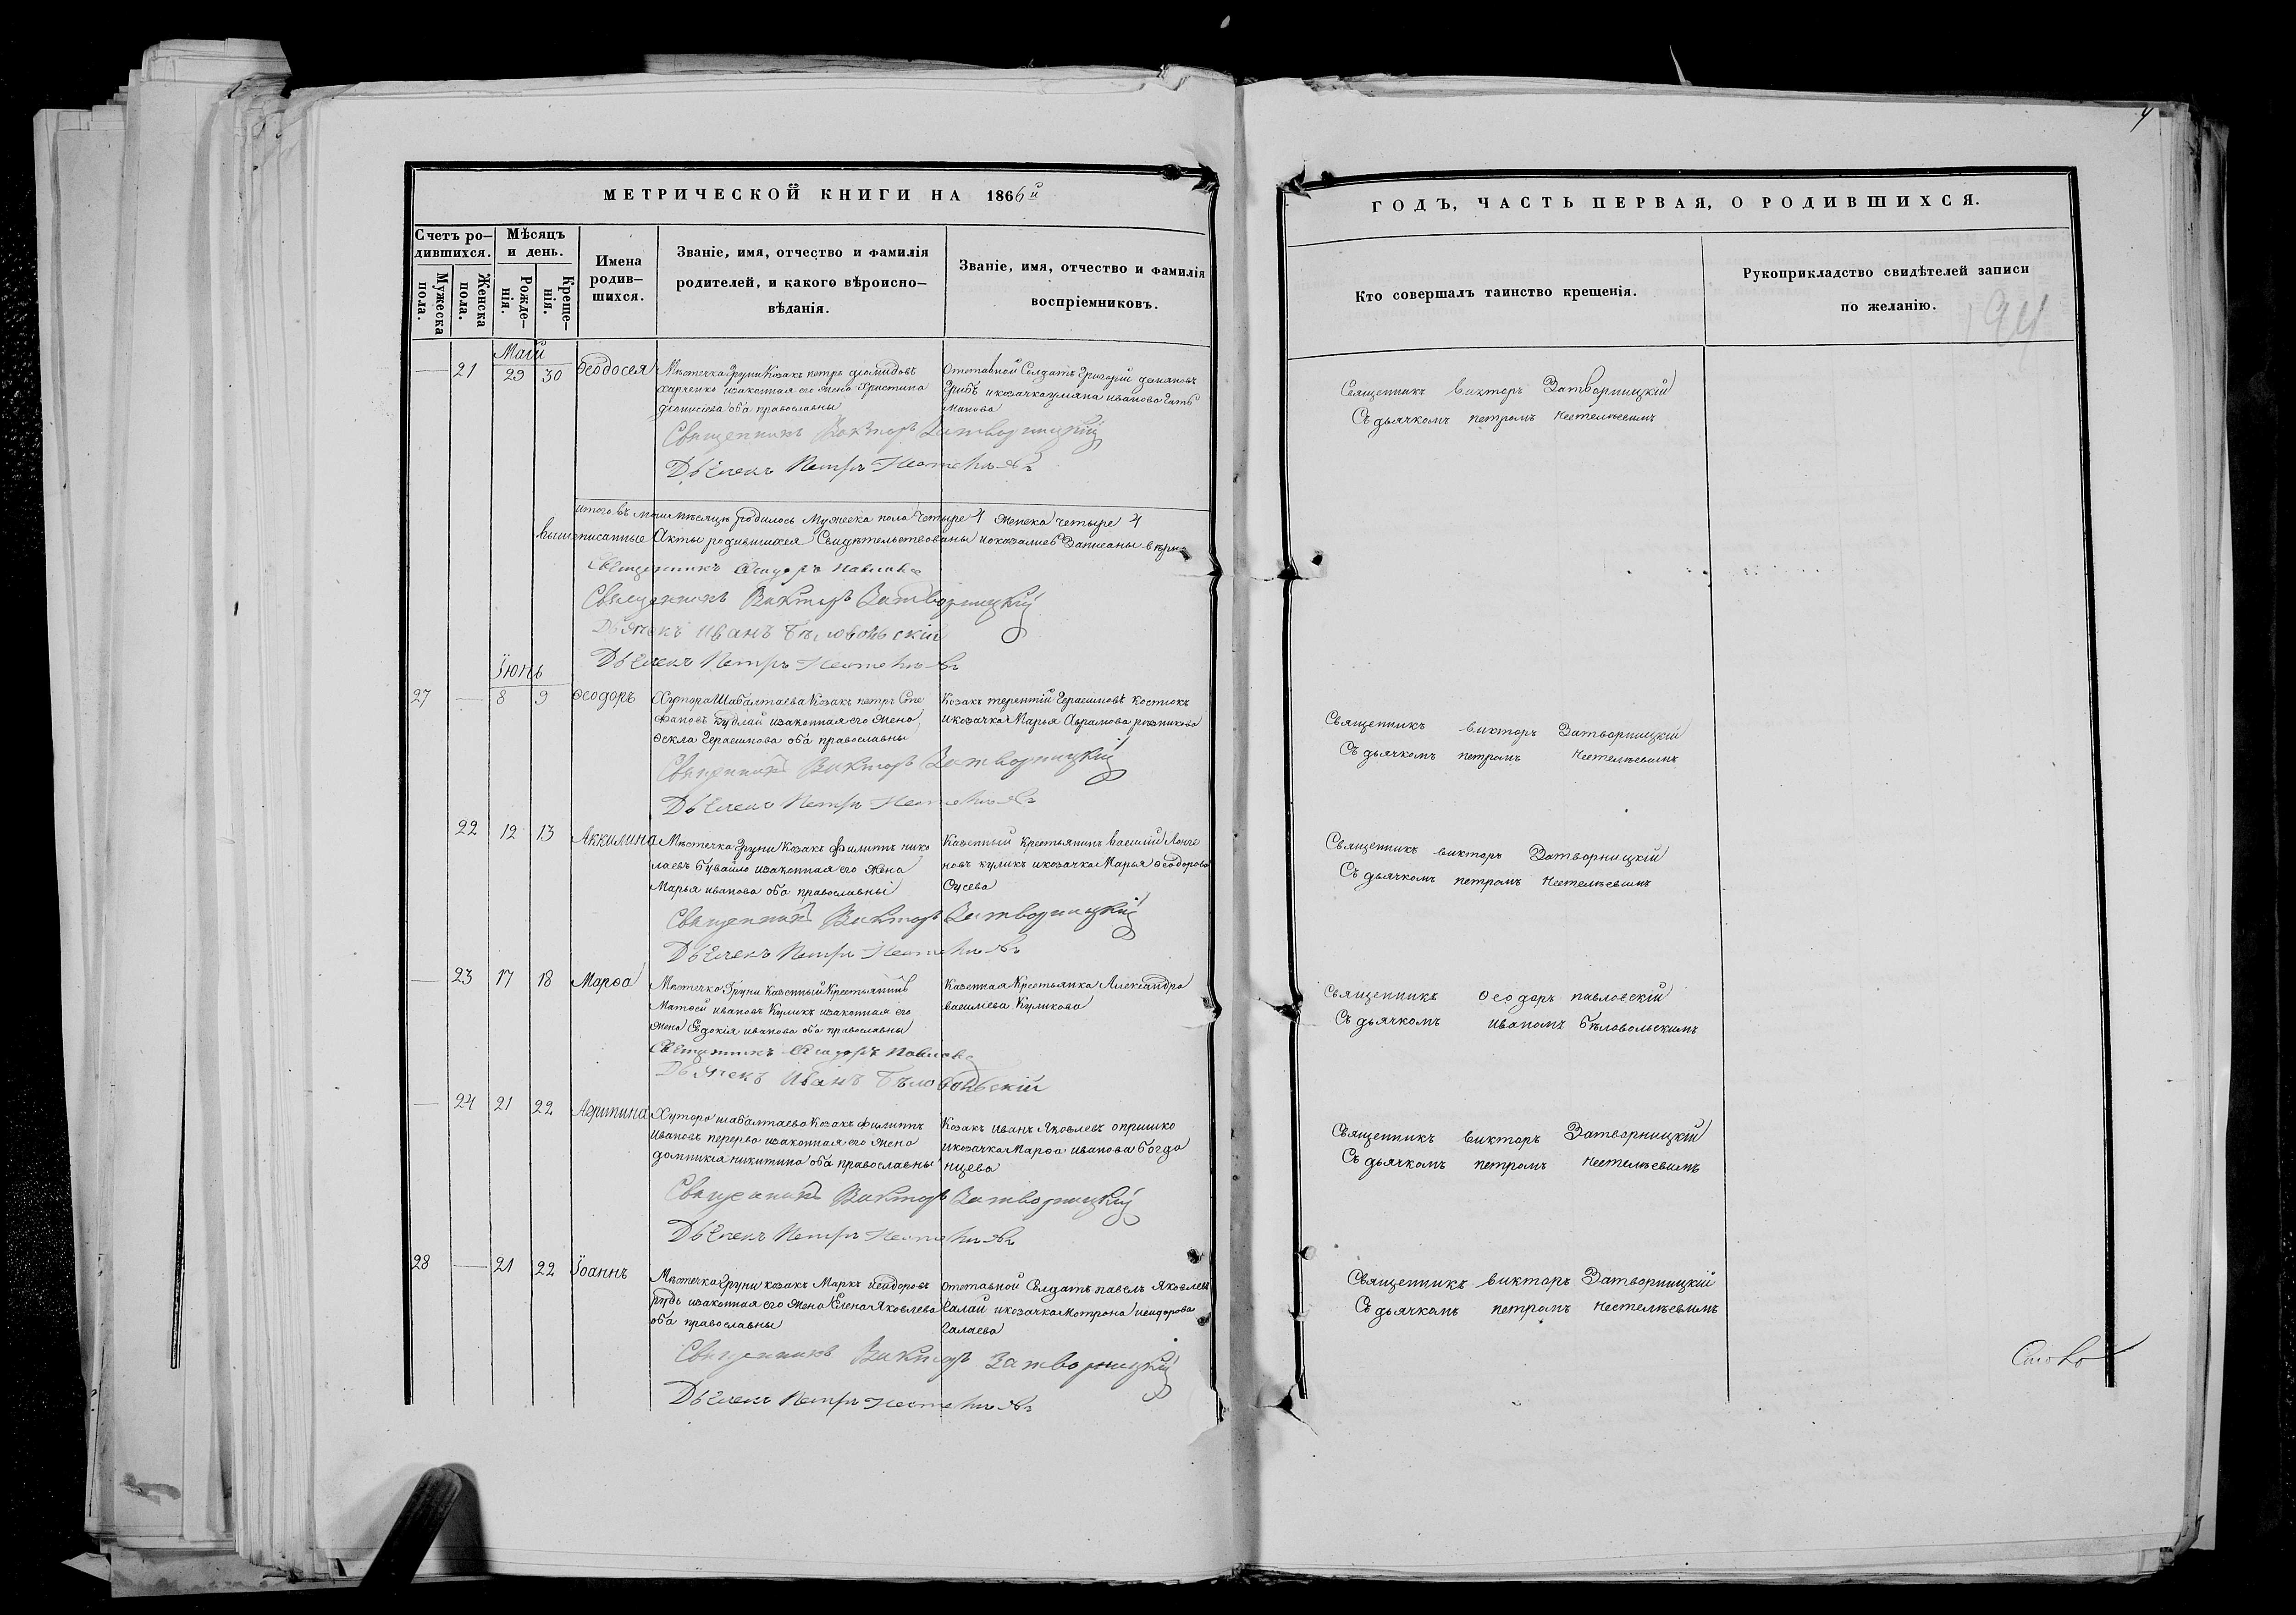 МЕТРИЧЕСКОЙ КНИГИ НА 1866й
Счетъ ро-
дившихся.
Мужеска
пола.
Женска
пола.
Мѣсяцъ
и день.
Рожде-
нія.
Креще-
нія.
Имена
родив-
шихся.
Званіе, имя, отчество и фамилія
родителей, и какого вѣроиспо-
вѣданія.
Званіе, имя, отчество и фамилія
воспріемниковъ.
Май
— 21 29 30 Ѳеодосея
Мѣстечка Груни Козакъ петръ діомидовъ
харченко изаконная его жена Христина
діонисіева оба православны
Отставной Солдатъ Григорій
Грибъ икозачка уліяна иванова Гать
манова
Священникъ Викторъ Затворницкій
Дьячекъ Петръ
итого въ маи мѣсяцѣ родилось Мужеска пола Четыре 4 женска четыре 4
вышеписанные Акты родившихся Свидѣтельствованы иоказались Записаны вѣрно
Священникъ Ѳеодоръ Павловс
Священникъ Викторъ Затворницкій
Дьячекъ Иванъ Бѣловольскій
Дьячекъ Петръ
Іюнь
27 — 8 9 Ѳеодоръ
Хутора Шабалтаева Козакъ петръ Сте
фановъ Кудлай изаконная его жена
Ѳекла Герасимова оба православны
Козакъ терентій Герасимовъ Костюкъ
икозачка Марья Аврамова резникова
Священникъ Викторъ Затворницкій
Дьячекъ Петръ
22 12 13 Аккилина
Мѣстечка Груни Козакъ филиппъ нико
лаевъ бувайло изаконная его жена
Марья иванова оба православны
Казенный Крестьянинъ василій Логге
новъ куликъ икозачка Марья Ѳеодорова
Гусева
Священникъ Викторъ Затворницкій
Дьячекъ Петръ
— 23 17 18 Марѳа
Мѣстечка Груни Казенный Крестьянинъ
Матѳей ивановъ Куликъ изаконная его
жена Евдокія иванова оба православны
Казенная Крестьянка Александра
васильева Куликова
Священникъ Ѳеодоръ Павловс
Дьячекъ Иванъ Бѣловольскій
— 24 21 22 Агрипина
Хутора шабалтаева Козакъ филиппъ
Ивановъ перерва изаконная его жена
домникія никитина оба православны
Козакъ иванъ Яковлевъ опришко
икозачка Марѳа иванова богда
нцева
Священникъ Викторъ Затворницкій
Дьячекъ Петръ
28 — 21 22 Іоаннъ
Мѣстечка Груни козакъ Маркъ исидоровъ
рудь изаконная его жена Елена Яковлева
оба православны
отставной Солдатъ павелъ Яковлевъ
Галай икозачка Мотрона исидорова
Галаева
Священникъ Викторъ Затворницкій
Дьячекъ Петръ
ГОДЪ, ЧАСТЬ ПЕРВАЯ, О РОДИВШИХСЯ.
Кто совершалъ таинство крещенія.
Рукоприкладство свидѣтелей записи
по желанію.
194
Священникъ викторъ Затворницкій
Съ дьячкомъ петромъ
Священникъ викторъ Затворницкій
Съ дьячкомъ петромъ
Священникъ викторъ Затворницкій
Съ дьячкомъ петромъ
Священникъ Ѳеодоръ павловскій
Съ дьячкомъ иваномъ бѣловольскимъ
Священникъ викторъ Затворницкій
Съ дьячкомъ петромъ
Священникъ викторъ Затворницкій
Съ дьячкомъ петромъ